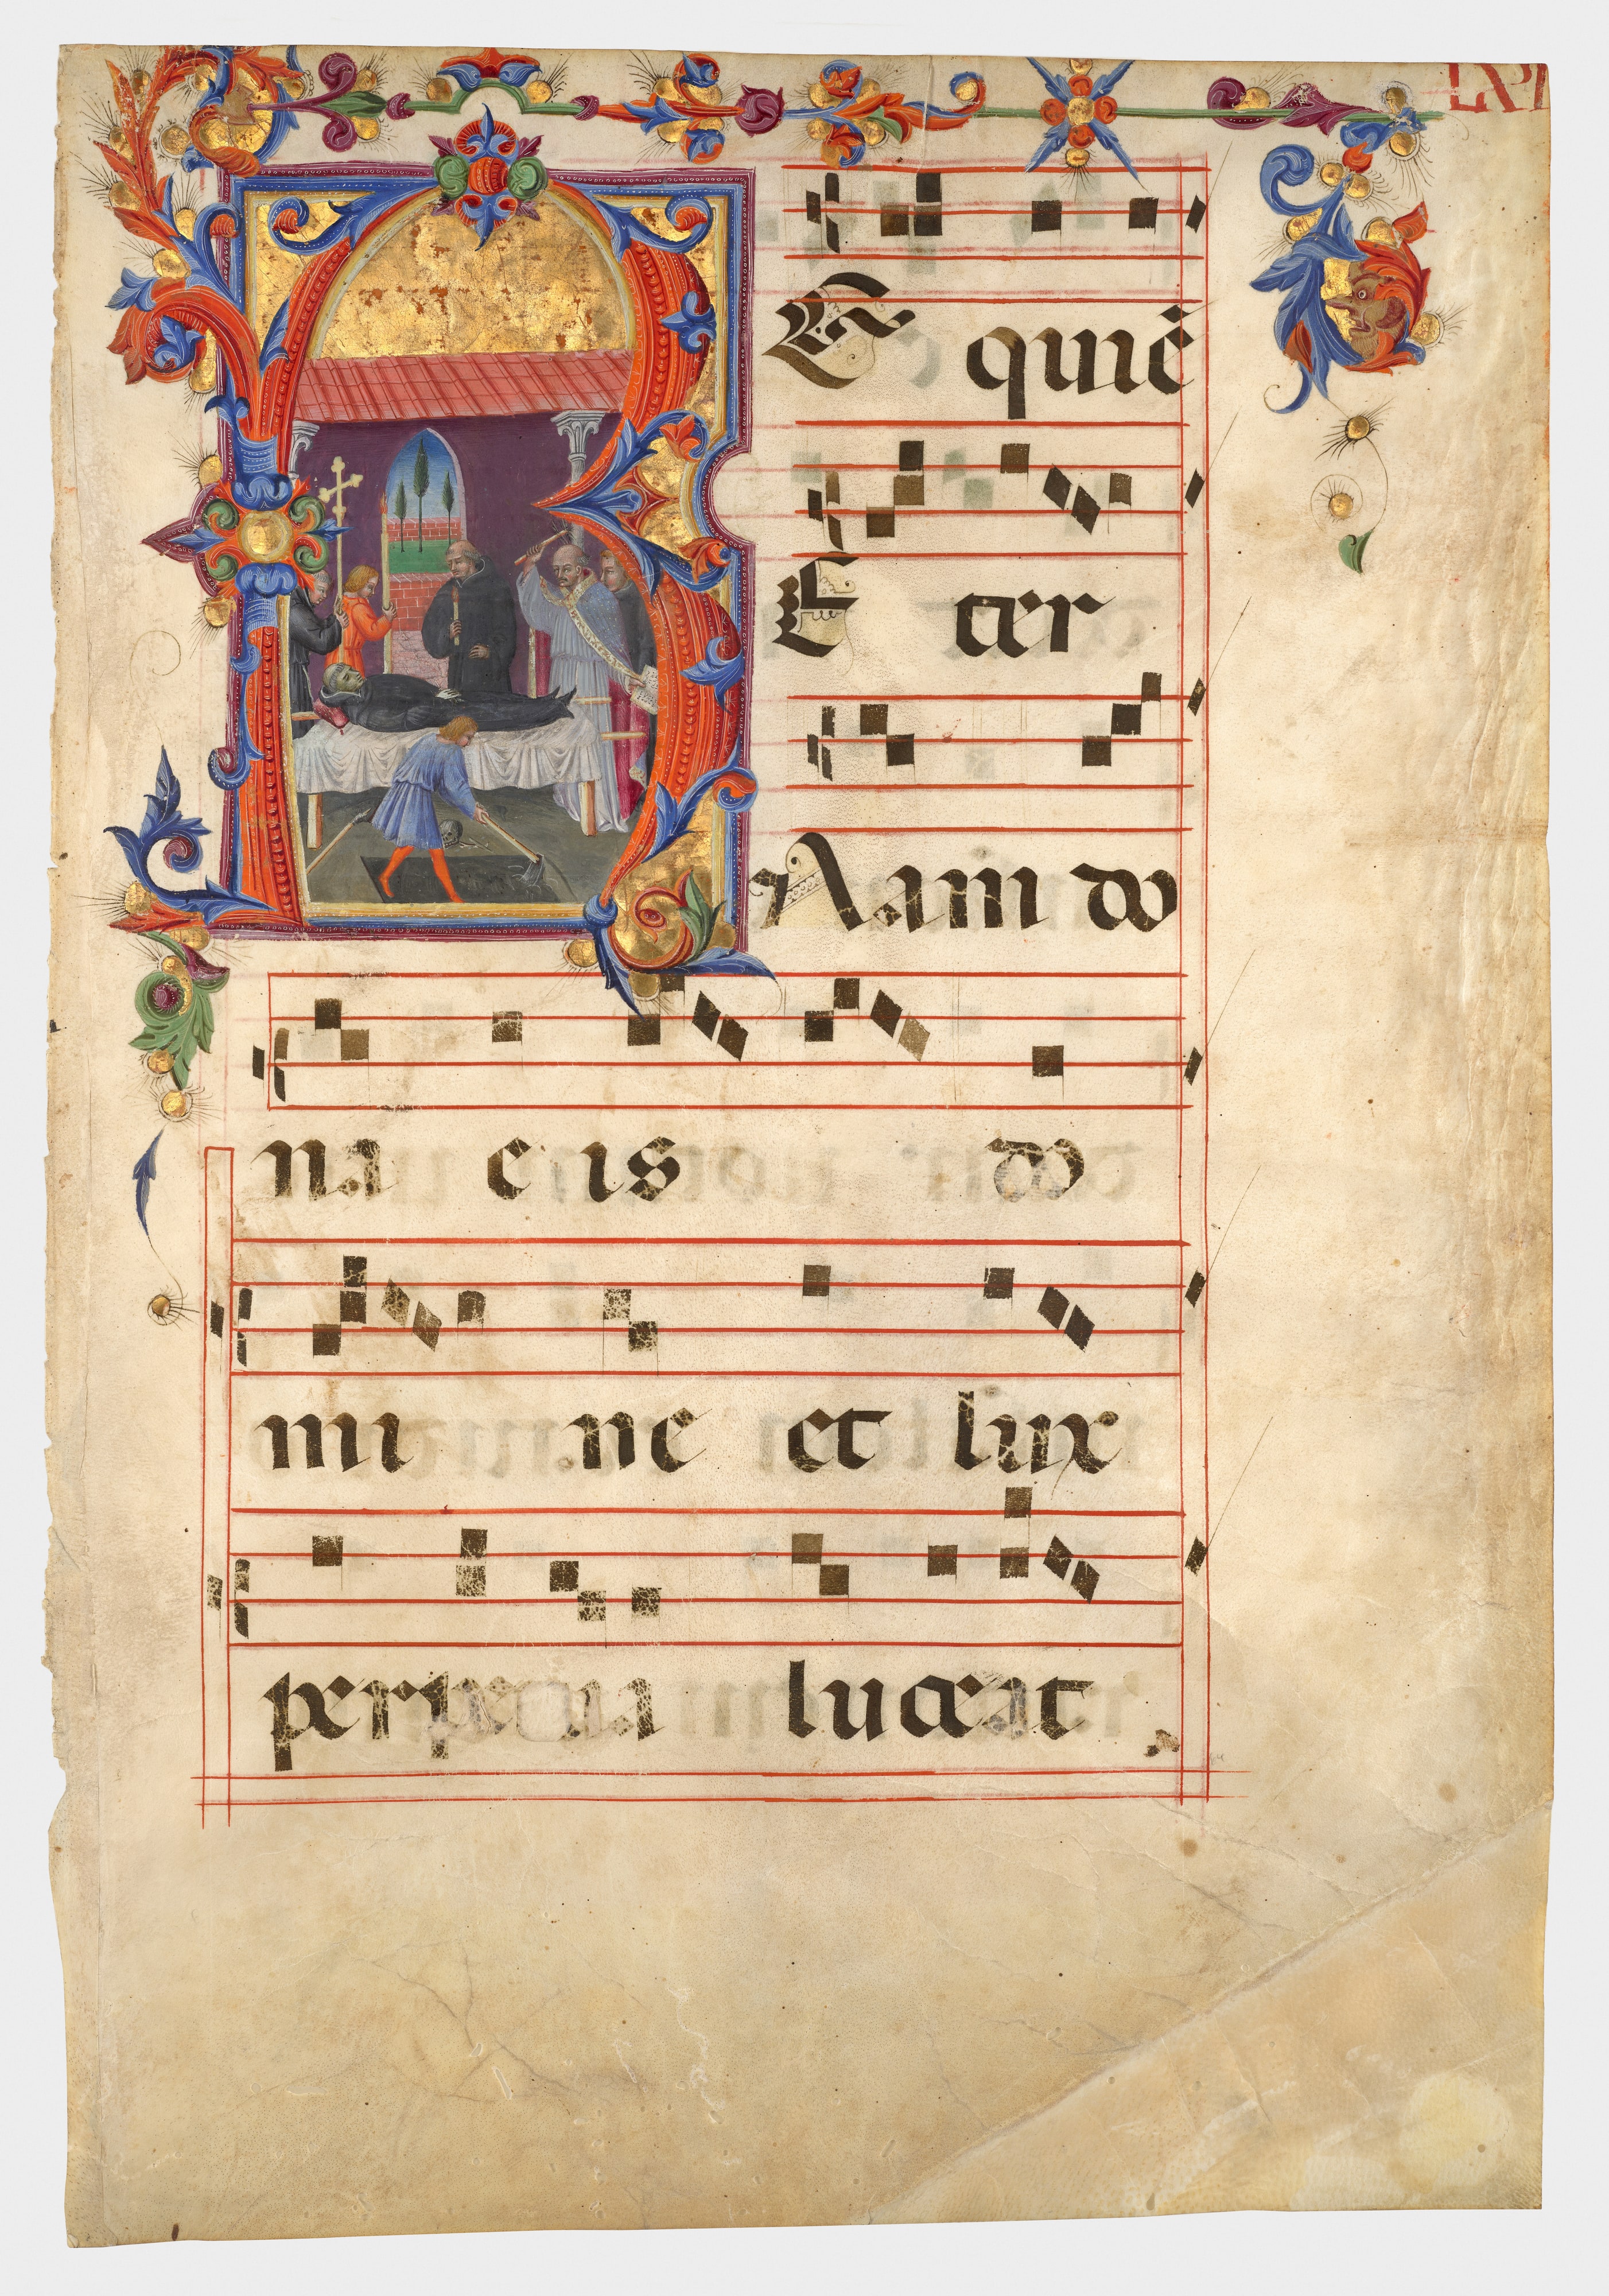 REquiē
E ter
Nam do
na e is do
mi ne et lux
perpetua luceat